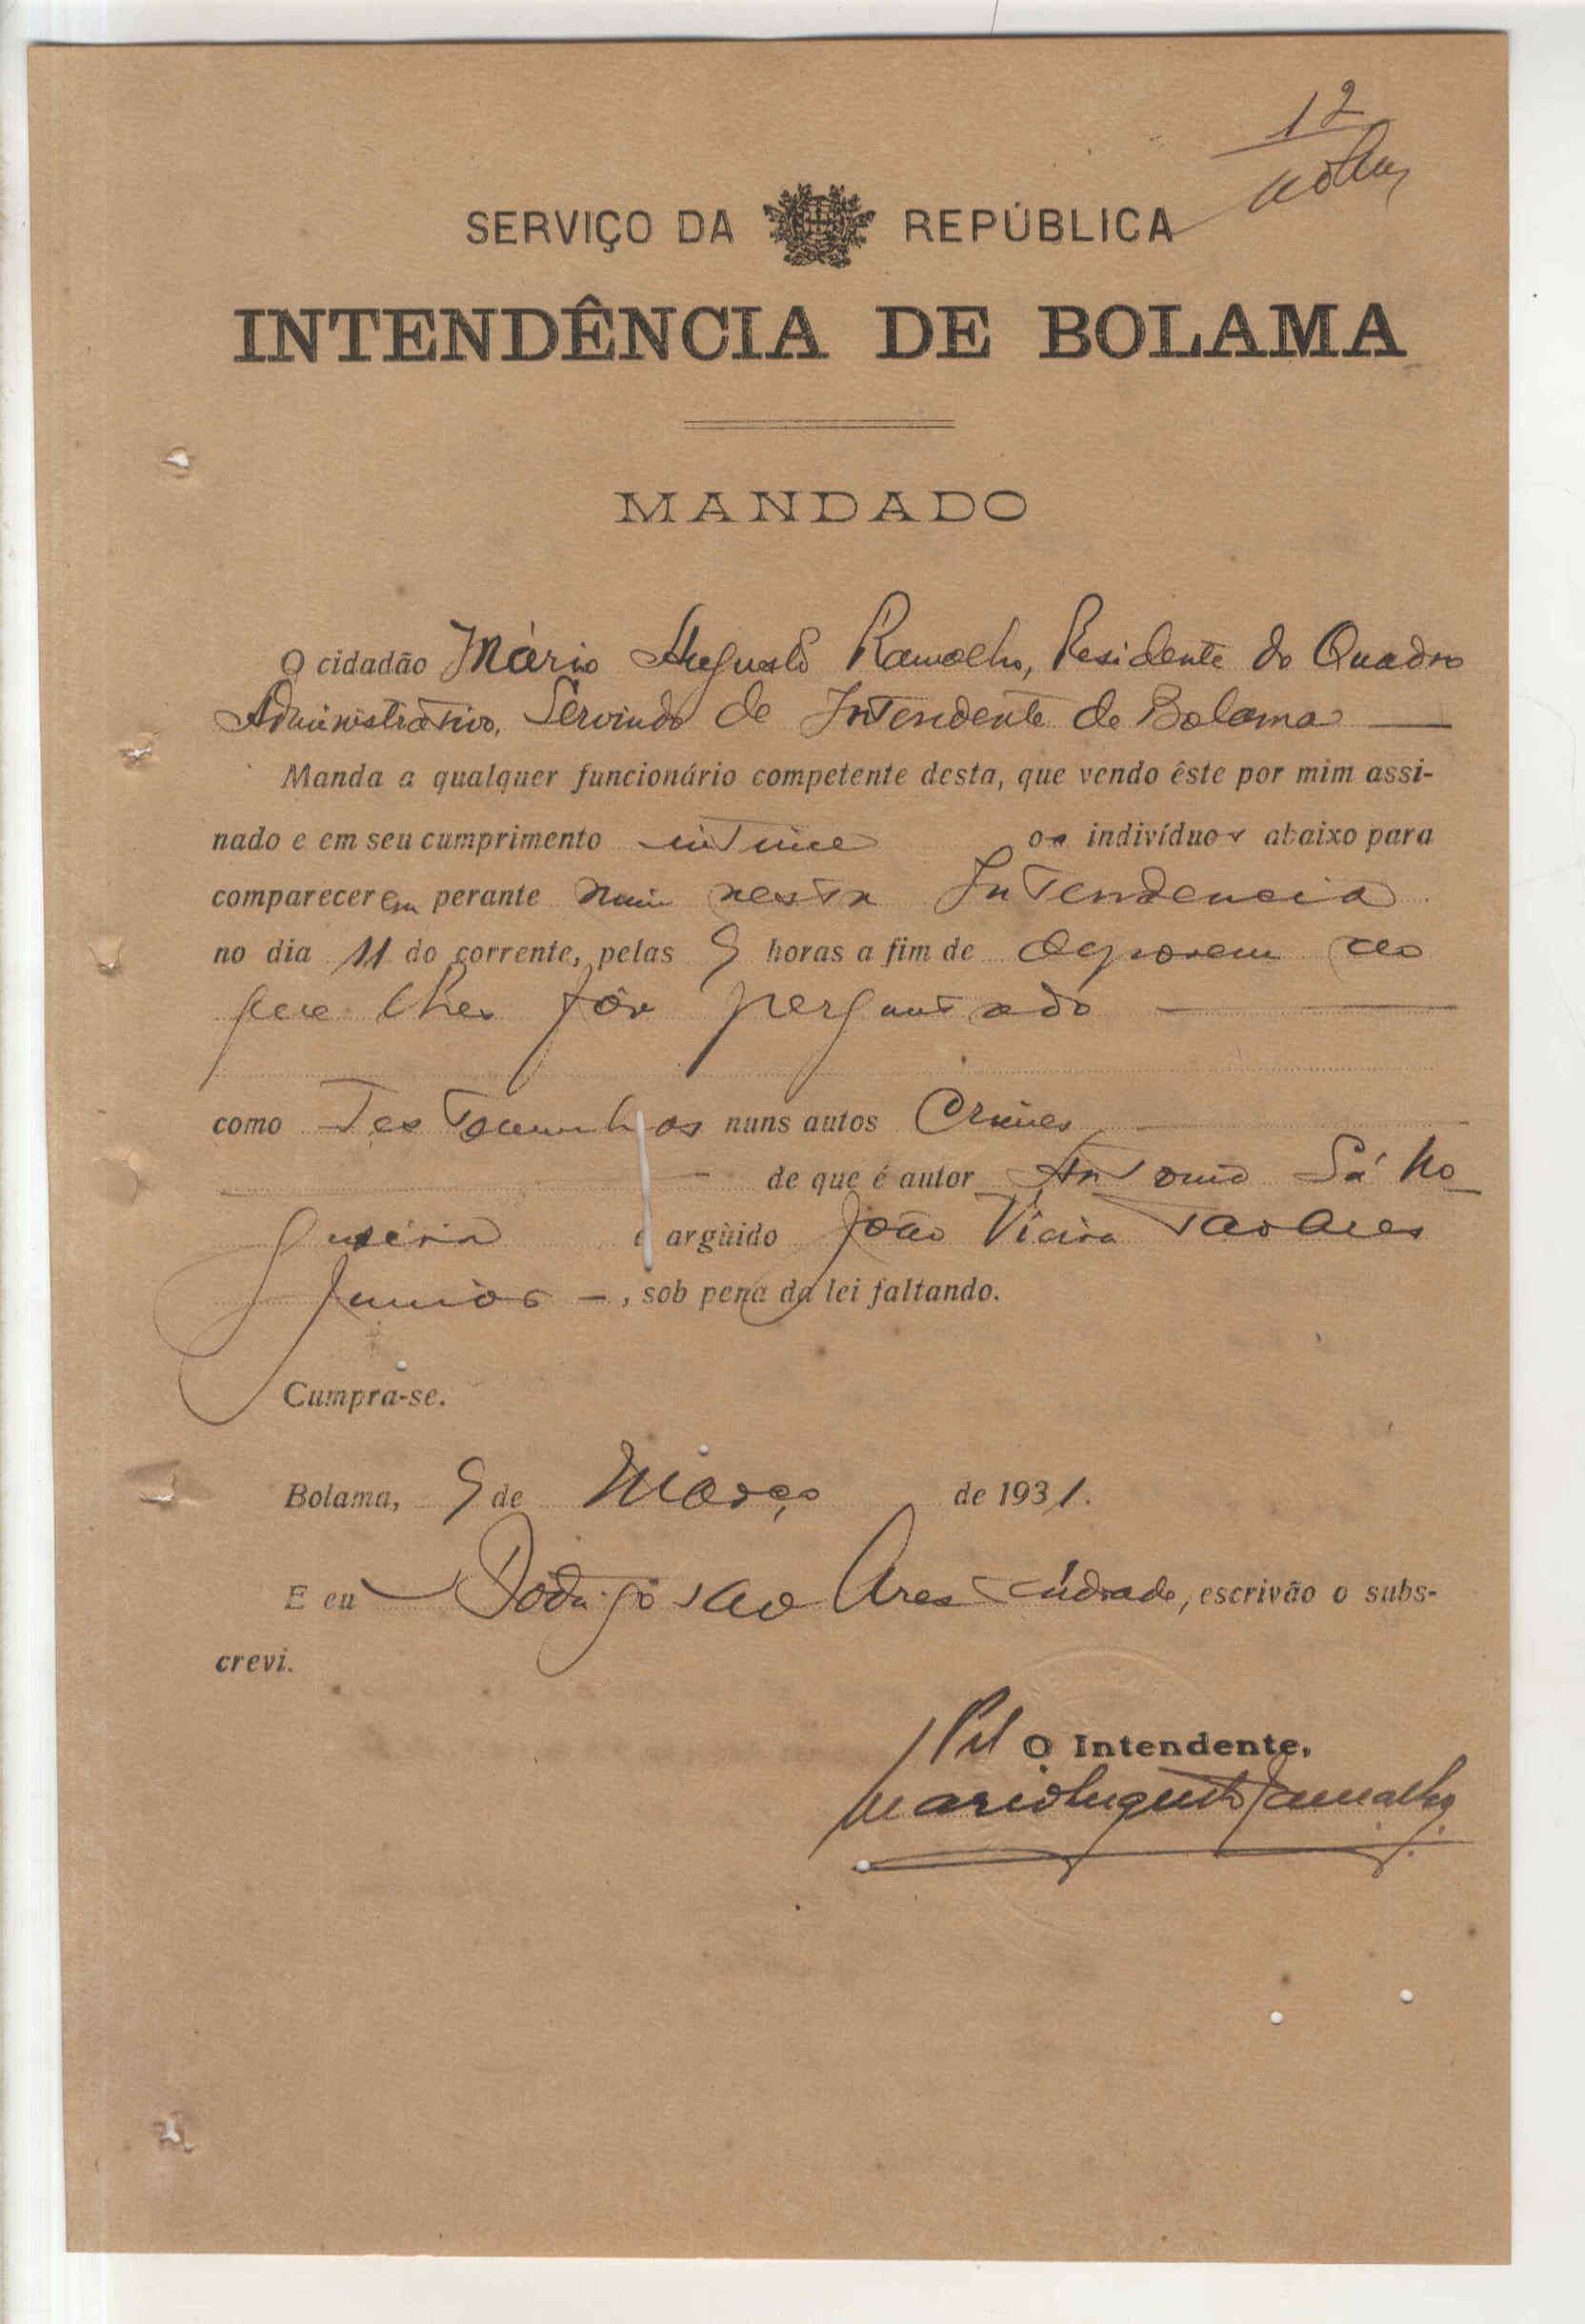 12
SERVIÇO DA REPÚBLICA
INTENDÊNCIA DE BOLAMA
MANDADO
O cidadão Mário Augusto Ramalho, Residente do Quadro
Administrativo, Servindo de Intendente de Bolama
Manda a qualquer funcionário competente desta, que vendo êste por mim assi-
nado e em seu cumprimento intime os indivíduos abaixo para
comparecerem perante mim nesta Intendencia
no dia 11 do corrente, pelas 9 horas a fim de deporem ao
que lhes fôr perguntado
como Testemunhas nuns autos Crimes
de que é autor Antonio Sá No-
gueira e argùido João Vieira Tavares
Junior, sob pena da lei faltando.
Cumpra-se.
Bolama, 9 de Março de 1931.
E eu Rodrigo Tavares Andrade, escrivão o subs-
crevi.
O Intendente,
Mario Augusto Ramalho